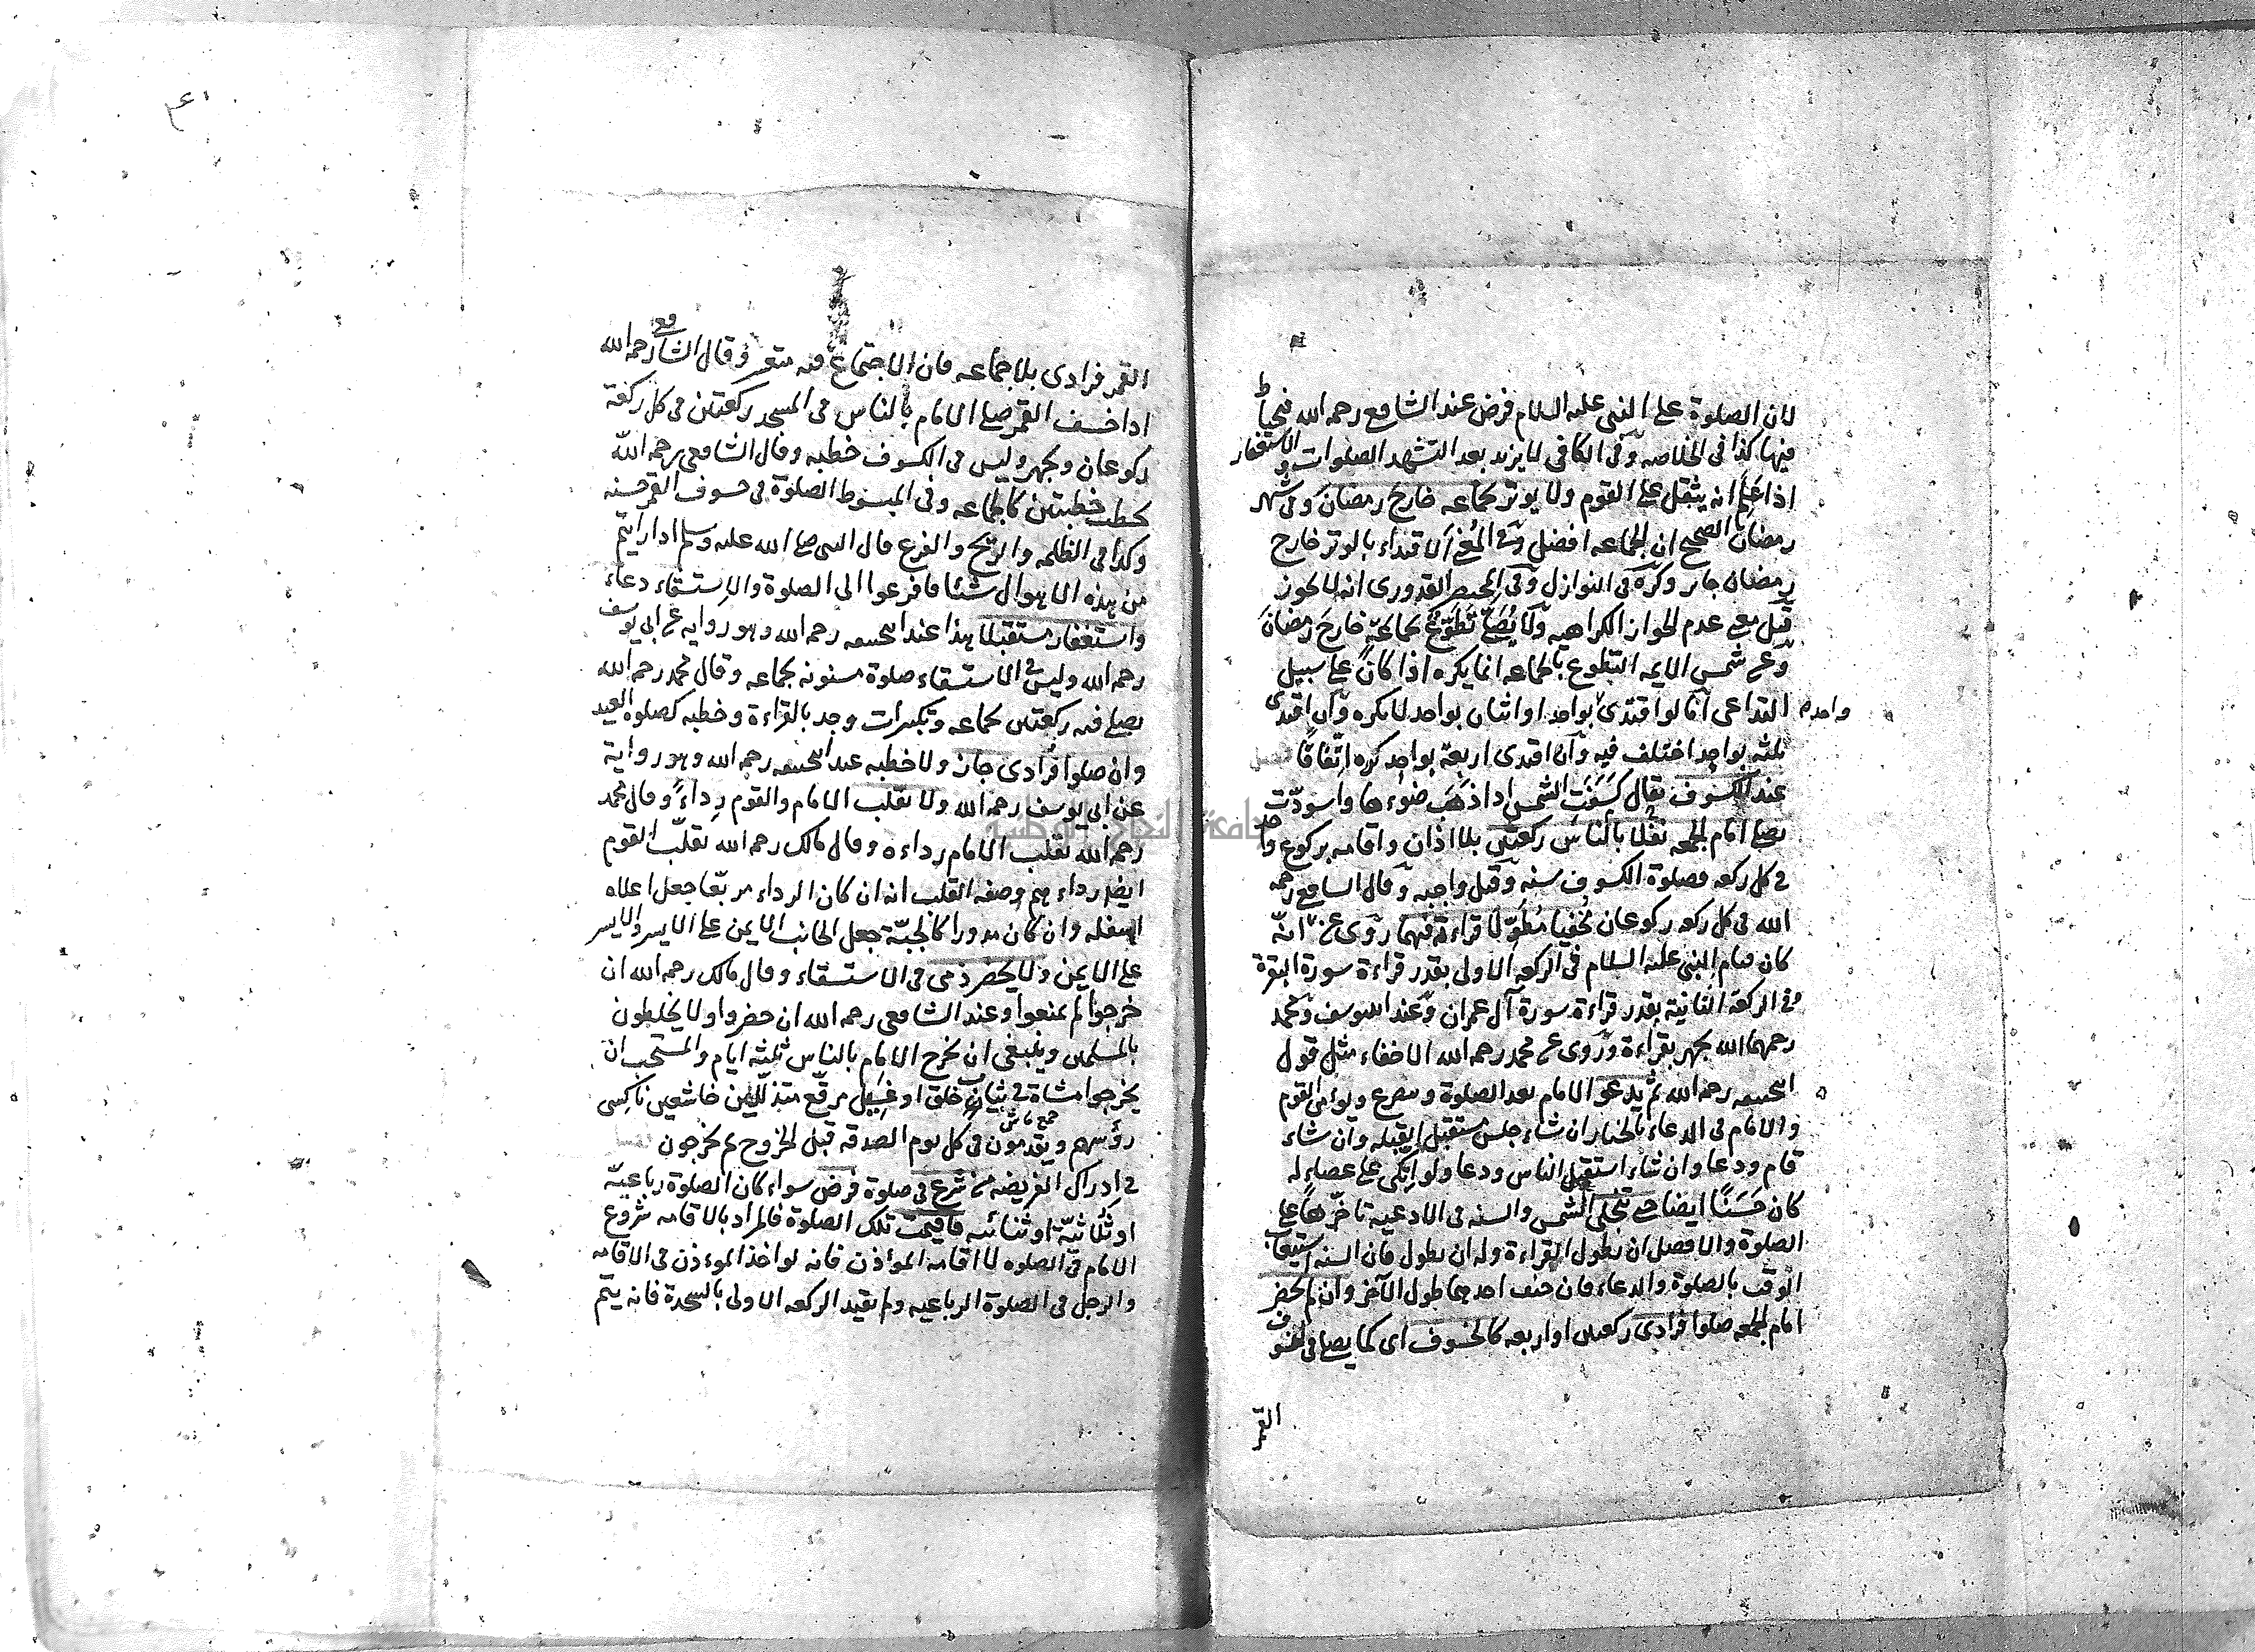 لان الصلوة على النبى عليه السلام فرض عند الشافعى رحمه الله فيحتاط
فيها كذا فى الخلاصه وفى الكافى لا يزيد بعد التشهد الصلوات والاستغفار
اذا علم انه يثقل على القوم ولا يوتر بجماعه خارج رمضان وفى شهر
رمضان الصحيح ان الجماعه افضل وفى المغنى الاقتداء بالوتر خارج
رمضان جاز وكره فى النوازل وفى المحيط القدورى انه لا يجوز
قيل معنى عدم الجواز الكراهيه ولا يصلى تطوع بجماعة خارج رمضان
وعن شمس الايمه التطوع بالجماعه انما يكره اذا كان على سبيل
التداعى اما لو اقتدى واحد بواحد او اثنان بواحد لا يكره وان اقتدى
ثلثه بواحد اختلف فيه وان اقتدى اربعة بواحد كره اتفاقا فصل
عند الكسوف يقال كسفت الشمس اذا ذهب ضوءها واسودت
يصلى امام الجمعه نفلا بالناس ركعتين بلا اذان واقامه بركوع واحد
فى كل ركعه وصلوة الكسوف سنه وقيل واجبه وقال الشافعى رحمه
الله فى كل ركعه ركوعان مخفيا مطولا قراءة فيهما روى انه
كان قيام النبى عليه السلام فى الركعه الاولى بقدر قراءة سورة البقرة
وفى الركعة الثانية بقدر قراءة سورة آل عمران وعند ابى يوسف ومحمد
رحمهما الله يجهر بقراءة وروى عن محمد رحمه الله الاخفاء مثل قول
ابى حنيفه رحمه الله ثم يدعو الامام بعد الصلوة ويتضرع ويؤمن القوم
والامام فى الدعاء بالخيار ان شاء جلس مستقبل القبله وان شاء
قام ودعا وان شاء استقبل الناس ودعا ولو اتكى على عصا له
كان حسنا ايضا حتى تنجلى الشمس والسنه فى الادعية تاخيرها على
الصلوة والافضل ان يطول القراءة وله ان يطول فان السنه استيعاب
الوقت بالصلوة والدعاء فان خفف احديهما طول الآخر وان لم يحضر
امام الجمعه صلوا فرادى ركعتين او اربعه كالخسوف اى كما يصلى فى خسوف
القمر
القمر فرادى بلا جماعه فان الاجتماع فيه متعذر وقال الشافعى رحمه الله
اذا خسف القمر صلى الامام بالناس فى المسجد ركعتين فى كل ركعة
ركوعان ويجهر وليس فى الكسوف خطبه وقال الشافعى رحمه الله
يخطب خطبتين كالجماعه وفى المبسوط الصلوة فى خسوف القمر حسنه
وكذا فى الظلمه والريح والفزع قال النبى صلى الله عليه وسلم اذا رايتم
من هذه الاهوال شئا فافزعوا الى الصلوة والاستسقاء دعاء
واستغفار مستقبلا هذا عند ابى حنيفه رحمه الله وهو روايه عن ابى يوسف
رحمه الله وليس فى الاستسقاء صلوة مسنونه بجماعه وقال محمد رحمه الله
يصلى فيه ركعتين بجماعه وتكبيرات وجهر بالقراءة وخطبه كصلوة العيد
وان صلوا فرادى جاز ولا خطبه عند ابى حنيفه رحمه الله وهو رواية
عن ابى يوسف رحمه الله ولا يقلب الامام والقوم رداء وقال محمد
رحمه الله يقلب الامام رداءه وقال مالك رحمه الله يقلب القوم
ايضا رداءهم وصفه القلب انه ان كان الرداء مربعا جعل اعلاه
اسفله وان كان مدورا كالجبة جعل الجانب الايمن على الايسر والايسر
على الايمن ولا يحضر ذمى فى الاستسقاء وقال مالك رحمه الله ان
خرجوا لم يمنعوا وعند الشافعى رحمه الله ان حضروا ولا يختلطون
بالمسلمين وينبغى ان يخرج الامام بالناس ثلثه ايام والمستحب ان
يخرجوا مشاة فى ثياب خلق او غسيل مرقع متذللين خاشعين ناكسى
رؤسهم ويقدمون فى كل يوم الصدقه قبل الخروج ثم يخرجون فصل
فى ادراك الفريضه من شرع فى صلوة فرض سواء كان الصلوة رباعية
او ثلاثية او ثنائيه فاقيمت تلك الصلوة فالمراد بالاقامه شروع
الامام فى الصلوه لا اقامه المؤذن فانه لو اخذ الموءذن فى الاقامه
والرجل فى الصلوة الرباعيه ولم يقيد الركعه الاولى بالسجدة فانه يتم